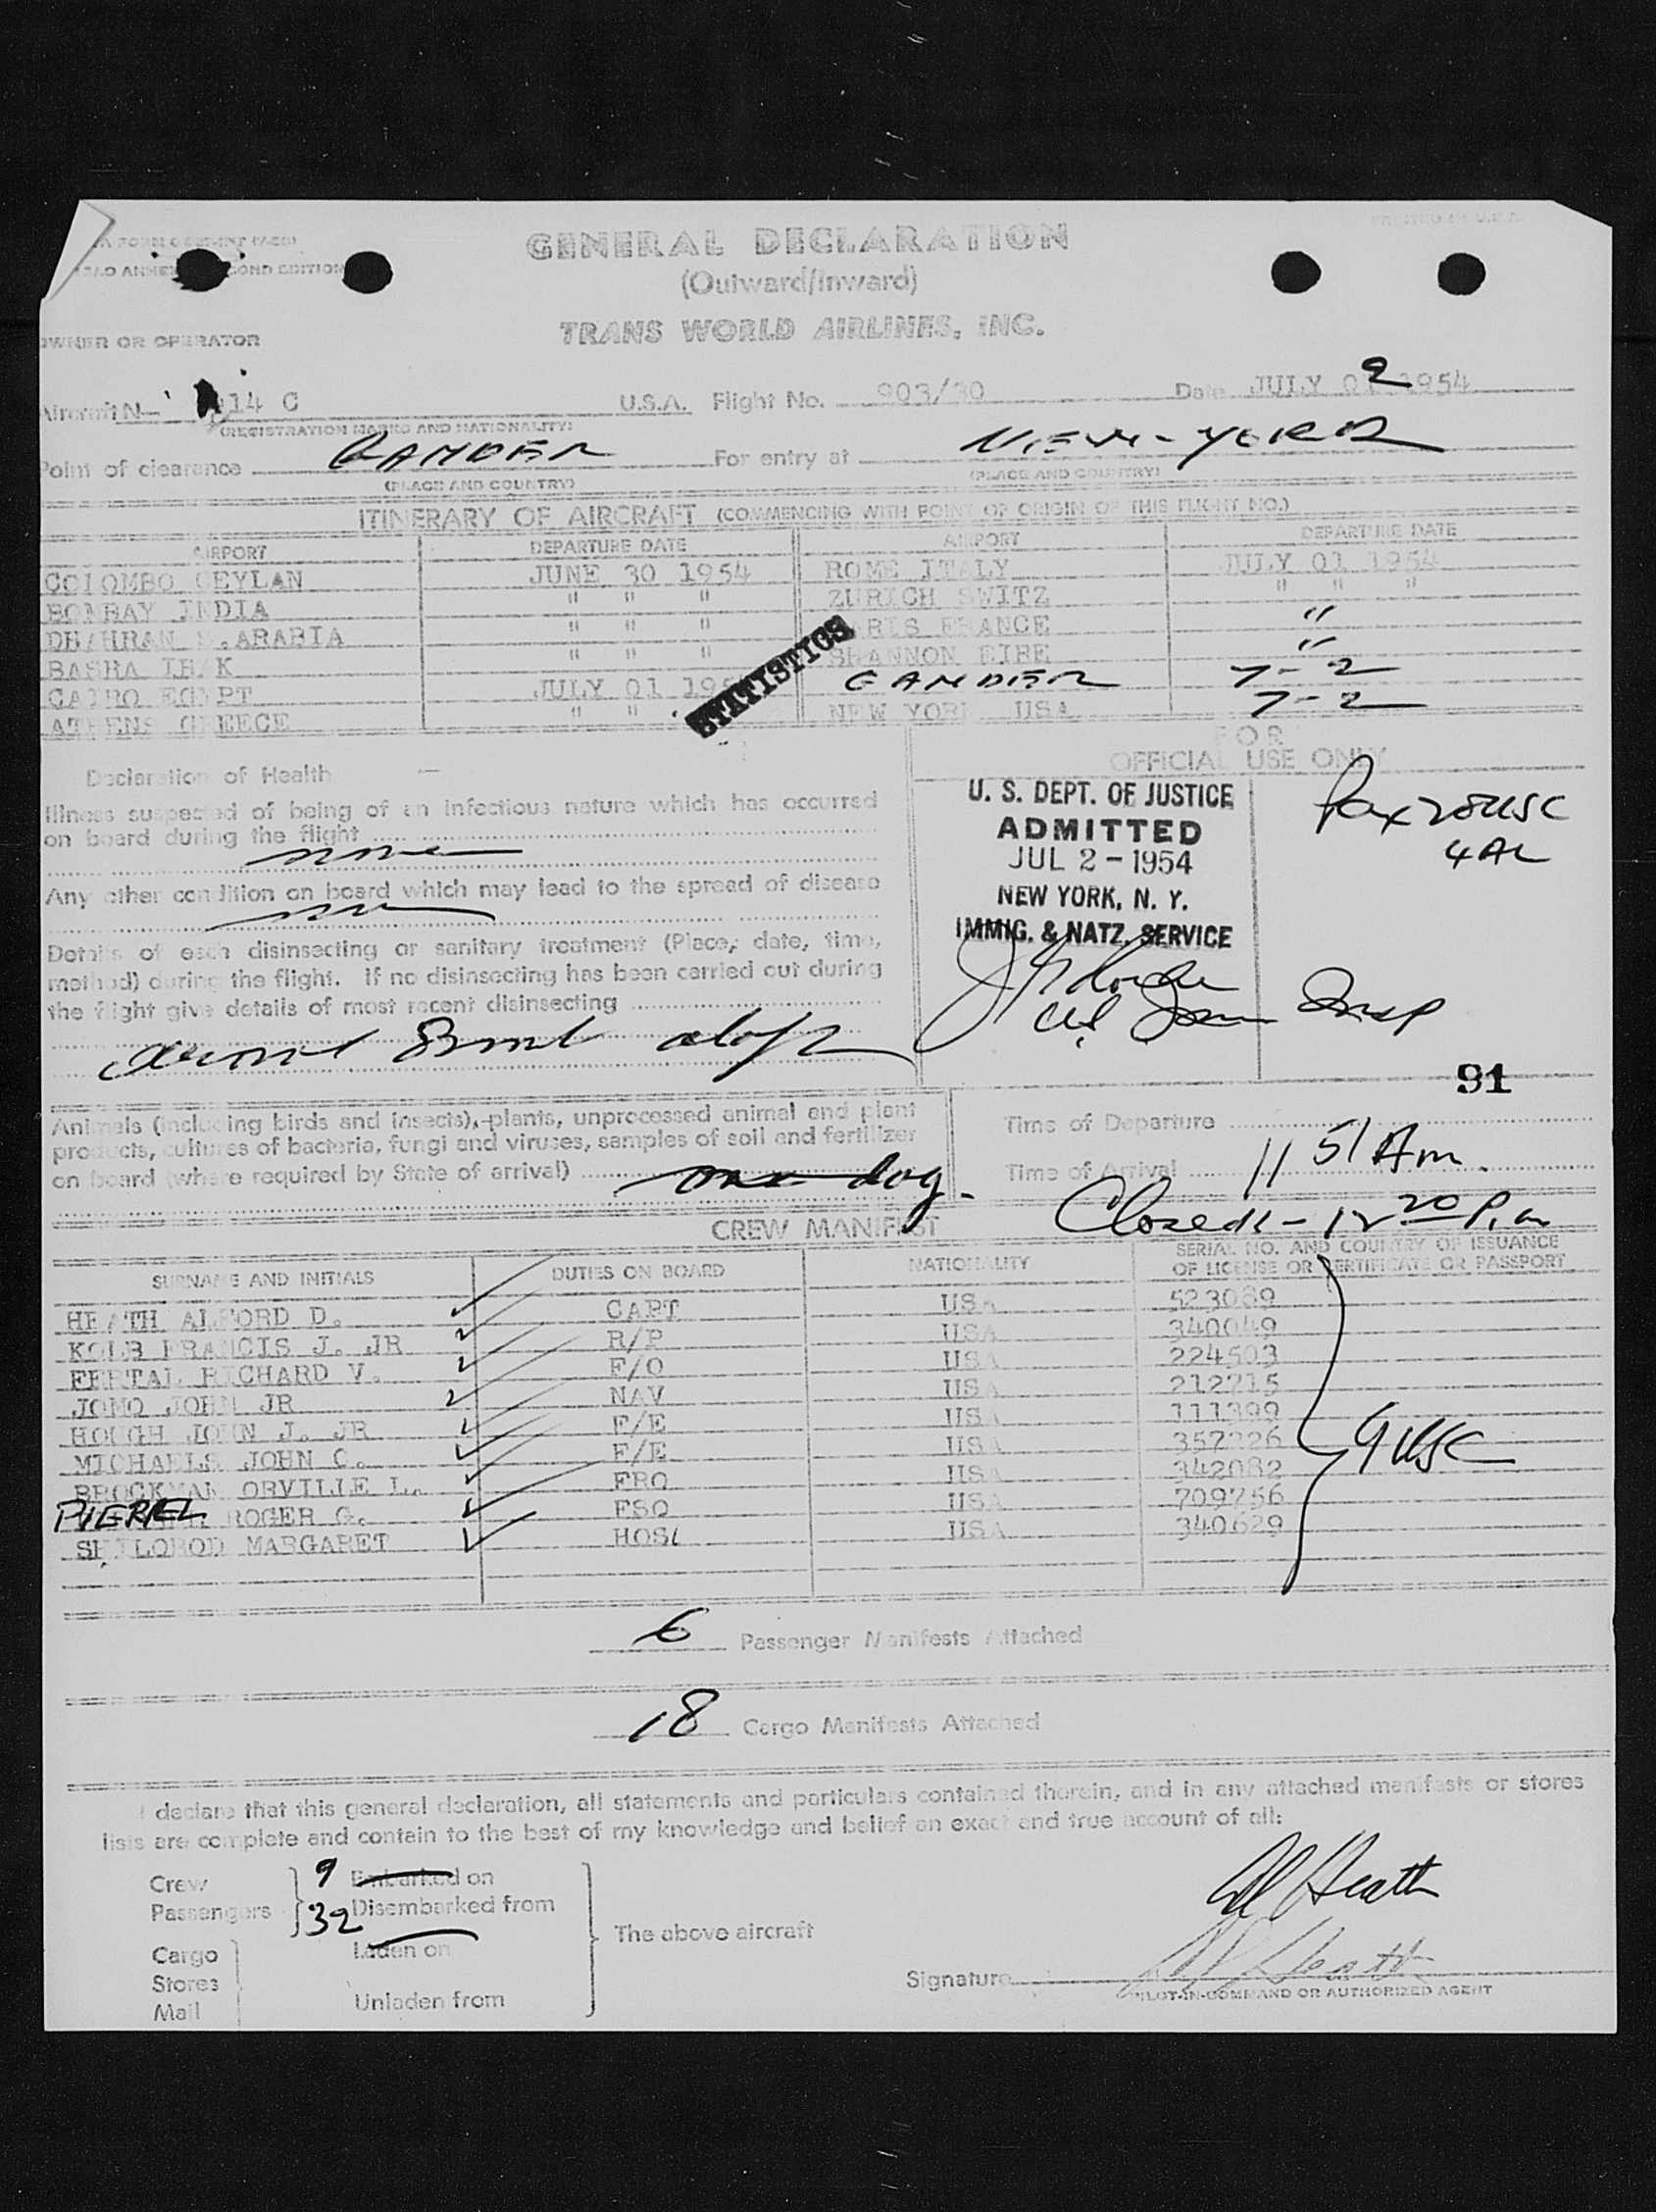 GENERAL DECLARATION
(Outward/Inward)
TRANS WORLD AIRLINES, INC.
OWNER OR OPERATOR
Aircraft N- 14 C U.S.A. Flight No. 903/30 Date JULY 02 1954
(REGISTRATION MARKS AND NATIONALITY)
Point of clearance GANDER For entry at NEW-YORK
(PLACE AND COUNTRY) (PLACE AND COUNTRY)
ITINERARY OF AIRCRAFT (COMMENCING WITH POINT OF ORIGIN OF THIS FLIGHT NO.)
AIRPORT DEPARTURE DATE AIRPORT DEPARTURE DATE
COLOMBO CEYLAN JUNE 30 1954 ROME ITALY JULY 01 1954
BOMBAY INDIA " " " ZURICH SWITZ " " "
DHAHRAN S.ARABIA " " " PARIS FRANCE "
BASRA IRAK " " " SHANNON EIRE "
CAIRO EGYPT JULY 01 1954 GANDER 7-2
ATHENS GREECE " " NEW YORK USA 7-2
STATISTICS
FOR
OFFICIAL USE ONLY
Declaration of Health
Illness suspected of being of an infectious nature which has occurred
on board during the flight
none
Any other condition on board which may lead to the spread of disease
Details of each disinsecting or sanitary treatment (Place, date, time,
method) during the flight. If no disinsecting has been carried out during
the flight give details of most recent disinsecting
Aerosol Bomb aloft
U. S. DEPT. OF JUSTICE
ADMITTED
JUL 2 - 1954
NEW YORK, N. Y.
IMMIG. & NATZ. SERVICE
Pax 28 USC
4 AL
Insp
91
Animals (including birds and insects), plants, unprocessed animal and plant
products, cultures of bacteria, fungi and viruses, samples of soil and fertilizer
on board (where required by State of arrival) one dog.
Time of Departure
Time of Arrival 11 51 Am.
Closed - 12 20 P.m
CREW MANIFEST
SURNAME AND INITIALS DUTIES ON BOARD NATIONALITY SERIAL NO. AND COUNTRY OF ISSUANCE
OF LICENSE OR CERTIFICATE OR PASSPORT
HEATH ALFORD D. CAPT USA 523089
KOLB FRANCIS J. JR R/P USA 340049
FERTAL RICHARD V. F/O USA 224503
JOHN JR NAV USA 212715
HOUGH JOHN J. JR F/E USA 111399
MICHAELS JOHN C. F/E USA 357226
BROCKMAN ORVILLE L. FRO USA 342082
PIERREL ROGER G. FSO USA 709756
MARGARET HOST USA 340629
9 USC
6 Passenger Manifests Attached
18 Cargo Manifests Attached
I declare that this general declaration, all statements and particulars contained therein, and in any attached manifests or stores
lists are complete and contain to the best of my knowledge and belief an exact and true account of all:
Crew 9 Embarked on
Passengers 32 Disembarked from
The above aircraft
Cargo Laden on
Stores
Mail Unladen from
Al Heath
Signature
PILOT-IN-COMMAND OR AUTHORIZED AGENT